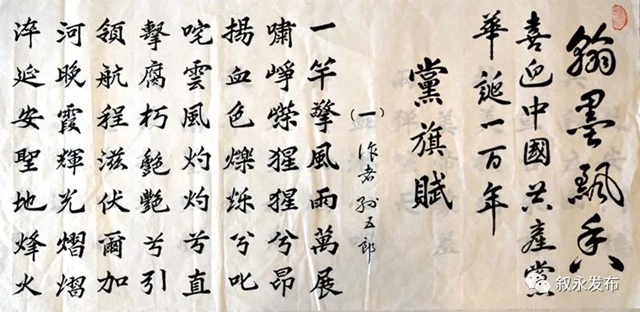 翰墨飄香
喜迎中國共產黨
華誕一百年
黨旗賦
(一)作者 孙五郎
一竿擎風雨萬展
嘯崢嶸猩猩兮昂
揚血色爍烁兮叱
咤雲風灼灼兮直
擊腐朽艷艷兮引
領航程滋伏爾加
河晚霞輝光熠熠
淬延安聖地烽火
叙永发布